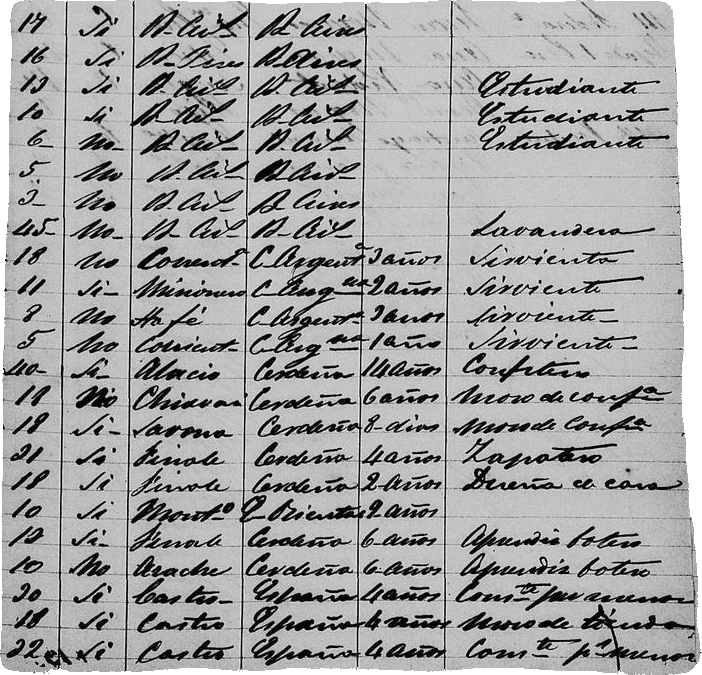 17 Si B. Ais B. Aires
16 Si B. Aires B. Aires
13 Si B. Ais B. Ais Estudiante
10 Si B. Ais B. Ais Estudiante
6 No B. Ais B. Ais Estudiante
5 No B. Ais B. Ais
3 No B. Ais B. Aires
45 No B. Ais B. Ais Lavandera
18 no C. Argenta 3 años Sirvienta
11 Si Misiones C. Argna 2 años Sirviente
8 No Sta fé C. Argenta 3 años Sirviente
5 No Corrient C. Argna 1 año Sirviente
40 Si Alacio Cerdeña 14 años Confitero
18 No Chiavari Cerdeña 6 años Moso de confa
18 Si Savona Cerdeña 8 dias Moso de confa
21 Si Finale Cerdeña 4 años Zapatero
18 Si Finale Cerdeña 2 años Dueña de casa
10 Si Monto E. Oriental 2 años
12 Si Finale Cerdeña 6 años Aprendiz botero
10 No Cerdeña 6 años Aprendiz botero
20 Si Castro España 4 años Conste por menor
18 Si Castro España 4 años Moso de tienda
22 Si Castro España 4 años Conste pr menor